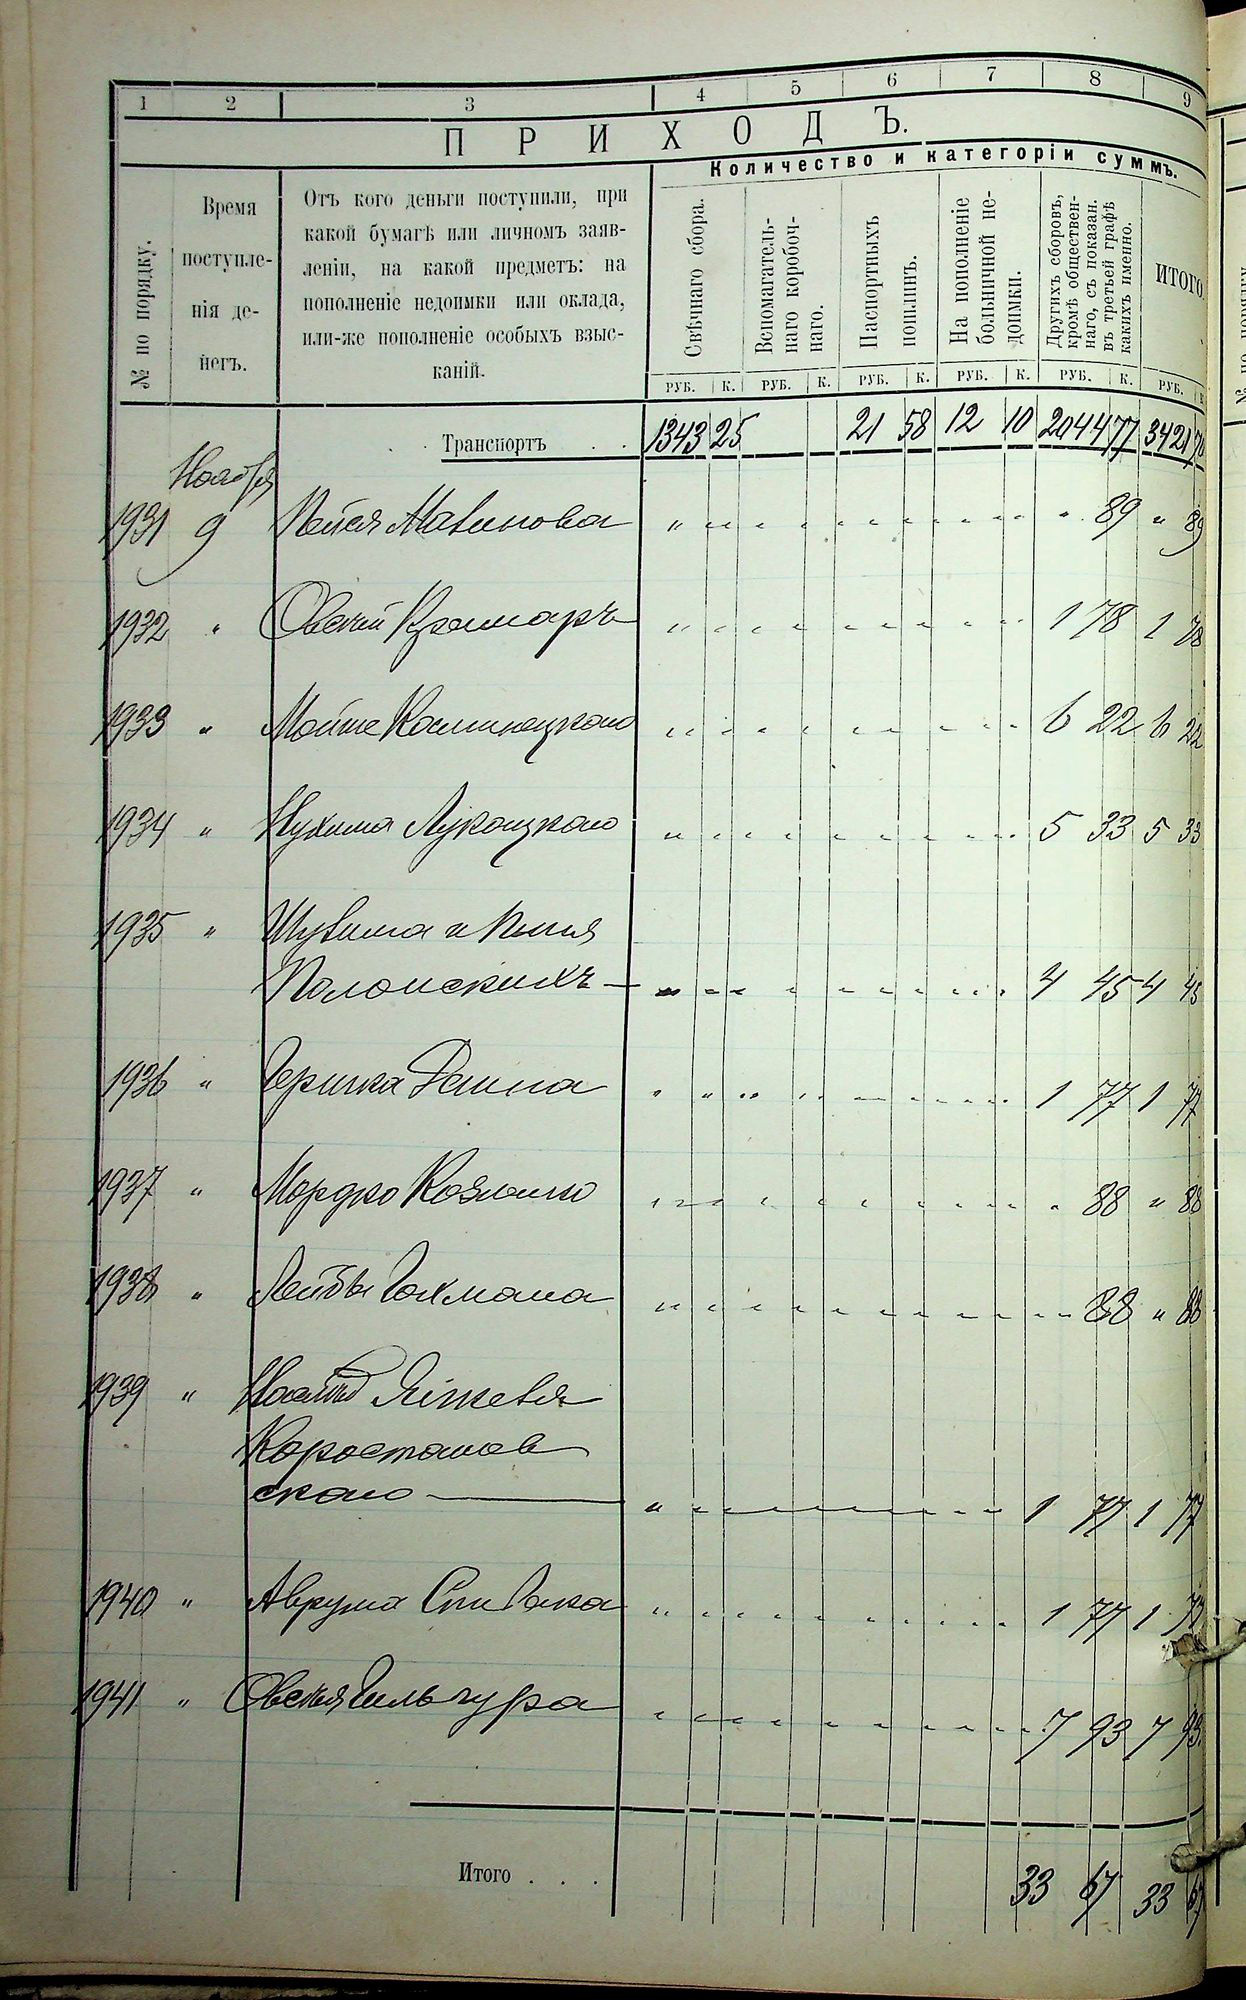 1 2 3 4 5 6 7 8 9
ПРИХОДЪ.
Количество и категоріи суммъ.
№ по порядку.
Время
поступле-
нія де-
негъ.
Отъ кого деньги поступили, при
какой бумагѣ или личномъ заяв-
леніи, на какой предметъ: на
пополненіе недоимки или оклада,
или-же пополненіе особыхъ взыс-
каній.
Свѣчнаго сбора.
Вспомагатель-
наго коробоч-
наго.
Паспортныхъ
пошлинъ.
На пополненіе
больничной не-
доимки.
Другихъ сборовъ,
кромѣ обществен-
наго, съ показан.
въ третьей графѣ
какихъ именно.
ИТОГО.
РУБ. К. РУБ. К. РУБ. К. РУБ. К. РУБ. К. РУБ. К.
Транспортъ . . 1343 25 21 58 12 10 2044 77 3421 70
Ноября
1931 9 " 89 " 89
1932 " Овсѣй Крамаръ 1 78 1 78
1933 " Мойше Каминецкаго 6 22 6 22
1934 " Нухима Лукацкаго 5 33 5 33
1935 "
Полонскихъ — 4 45 4 45
1936 " Гершка 1 77 1 77
1937 " Мордко 88 " 88
1938 " Лейбы Гохмана 88 " 88
1939 "
Коростышев
скаго — 1 77 1 77
1940 " Аврума Спивака 1 77 1 77
1941 " Овсѣя 7 93 7 93
Итого . . . 33 67 33 67